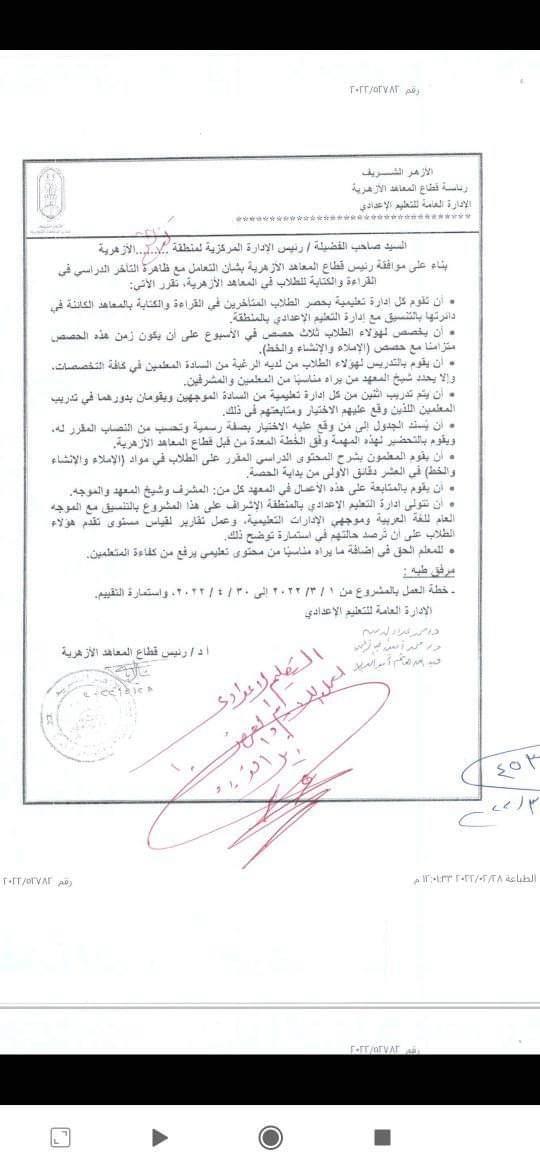 رقم ٢٠٢٢/٥٢٧٨٢
الأزهر الشـــريف
رئاسة قطاع المعاهد الأزهرية
الإدارة العامة للتعليم الإعدادي
السيد صاحب الفضيلة / رئيس الإدارة المركزية لمنطقة .......... الأزهرية
بناء على موافقة رئيس قطاع المعاهد الأزهرية بشأن التعامل مع ظاهرة التأخر الدراسي في
القراءة والكتابة للطلاب في المعاهد الأزهرية، تقرر الآتي:
• أن تقوم كل إدارة تعليمية بحصر الطلاب المتأخرين في القراءة والكتابة بالمعاهد الكائنة في
دائرتها بالتنسيق مع إدارة التعليم الإعدادي بالمنطقة.
• أن يخصص لهؤلاء الطلاب ثلاث حصص في الأسبوع على أن يكون زمن هذه الحصص
متزامنًا مع حصص (الإملاء والإنشاء والخط).
• أن يقوم بالتدريس لهؤلاء الطلاب من لديه الرغبة من السادة المعلمين في كافة التخصصات،
وإلا يحدد شيخ المعهد من يراه مناسبًا من المعلمين والمشرفين.
• أن يتم تدريب اثنين من كل إدارة تعليمية من السادة الموجهين ويقومان بدورهما في تدريب
المعلمين اللذين وقع عليهم الاختيار ومتابعتهم في ذلك.
• أن يُسند الجدول إلى مَن وقع عليه الاختيار بصفة رسمية وتحسب من النصاب المقرر له،
ويقوم بالتحضير لهذه المهمة وفق الخُطة المعدة من قبل قطاع المعاهد الأزهرية.
• أن يقوم المعلمون بشرح المحتوى الدراسي المقرر على الطلاب في مواد (الإملاء والإنشاء
والخط) في العشر دقائق الأولى من بداية الحصة.
• أن يقوم بالمتابعة على هذه الأعمال في المعهد كل من: المشرف وشيخ المعهد والموجه.
• أن تتولى إدارة التعليم الإعدادي بالمنطقة الإشراف على هذا المشروع بالتنسيق مع الموجه
العام للغة العربية وموجهي الإدارات التعليمية، وعمل تقارير لقياس مستوى تقدم هؤلاء
الطلاب على أن تُرصد حالتهم في استمارة توضح ذلك.
• للمعلم الحق في إضافة ما يراه مناسبًا من محتوى تعليمي يرفع من كفاءة المتعلمين.
مرفق طيه :
ـ خطة العمل بالمشروع من ١ /٣/ ٢٠٢٢ إلى ٣٠ / ٤ / ٢٠٢٢، واستمارة التقييم.
الإدارة العامة للتعليم الإعدادي
أ د / رئيس قطاع المعاهد الأزهرية
التعليم الإعدادي
٤٥٣
الطباعة ٢٠٢٢/٠٢/٢٨ ١٢:٠١:٣٣ م
رقم ٢٠٢٢/٥٢٧٨٢
رقم ٢٠٢٢/٥٢٧٨٢